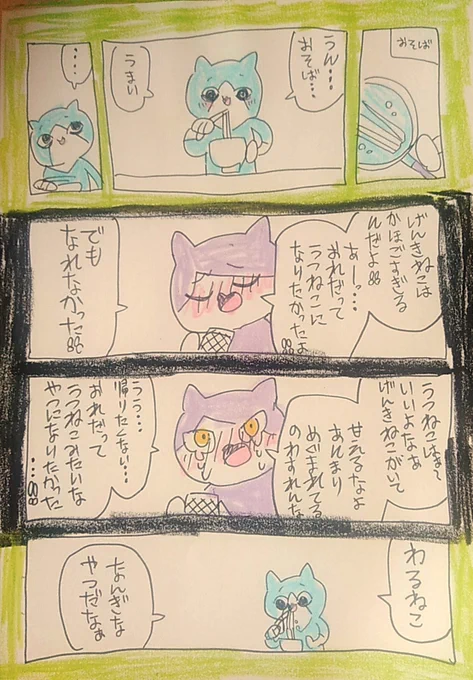 おそば
うん…
おそば…
うまい
…
げんきねこは
かほごすぎる
んだよ〰
あーっ…
おれだって
うつねこに
なりたかったよ
〰
でも
なれなかった〰
うつねこはな〜
いいよなぁ
げんきねこがいて
甘えるなよ
あんまり
めぐまれてる
のわすれんな
ううっ…
帰りたくない…
おれだって
うつねこみたいな
やつになりたかった
…〰
わるねこ
なんぎな
やつだなぁ